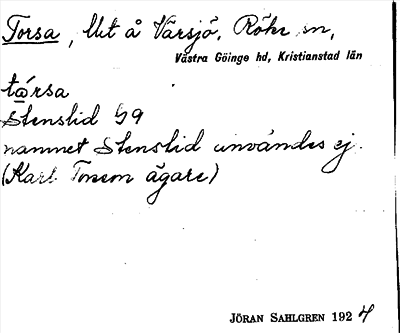 Torsa, llut å Värsjö, Röke sn,
Västra Göinge hd, Kristianstad län
tǫ́rsa
Stenslid 1/9
namnet Stenslid användes ej.
(Karl ägare)
JÖRAN SAHLGREN 1924